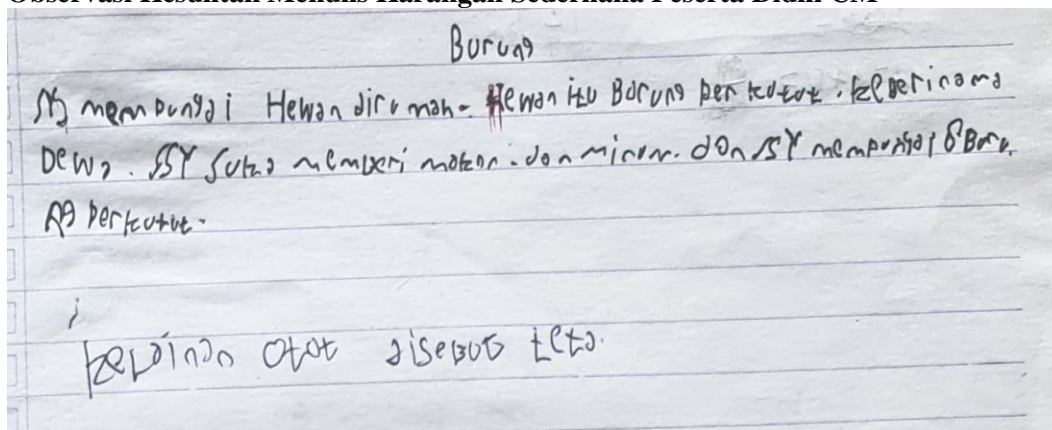 Observasi Kesulitan Menulis Karangan Sederhana Peserta Didik CM
Burung
mempunyai Hewan dirumah. Hewan itu Burung perkutut. ke beri nama
Dewa. SSY Suka memberi makan. dan minum. dan SSY mempunyai 8 Buru
ng perkutut.
i
disebut